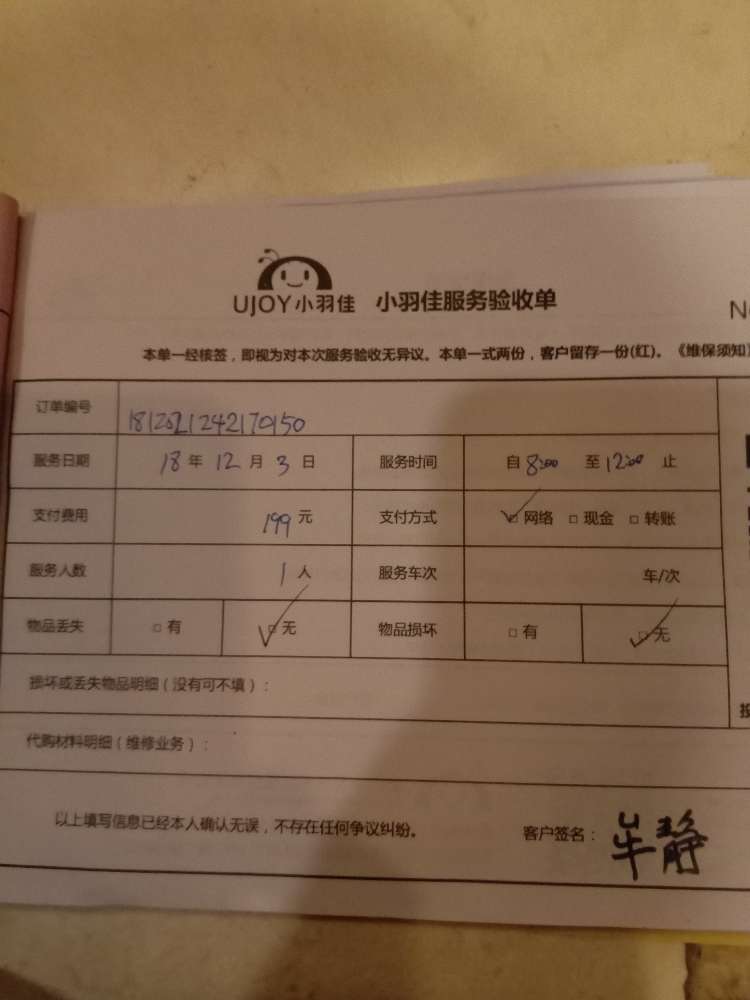 UJOY小羽佳 小羽佳服务验收单
本单一经核签，即视为对本次服务验收无异议。本单一式两份，客户留存一份(红)。《维保须知》
订单编号 1812021242170150
服务日期 18年12月3日 服务时间 自8:00至12:00止
支付费用 199元 支付方式 ☑网络 □现金 □转账
服务人数 1人 服务车次 车/次
物品丢失 □有 ☑无 物品损坏 □有 ☑无
损坏或丢失物品明细（没有可不填）：
代购材料明细（维修业务）：
以上填写信息已经本人确认无误，不存在任何争议纠纷。 客户签名： 静